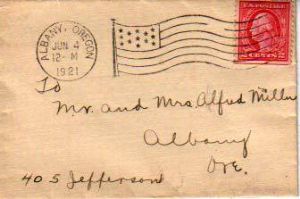 ALBANY, OREGON
JUN 4
12-M
1921
2 CENTS 2
To
Mr. and Mrs. Alfred Miller
Albany
Ore.
405 Jefferson